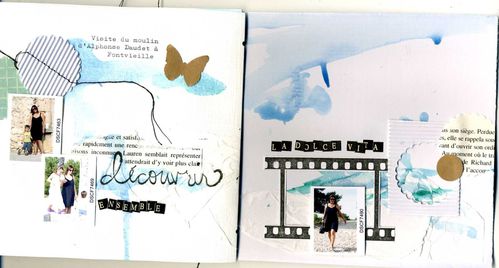 Visite du moulin
d'Alphonse Daudet à
Fontvieille
DSCF7463
gique et satisf
rapidement une renc
isons inconnues. Lauren semblait représenter
attendrait d'y voir plus clair
DSCF7469
découvrir
ENSEMBLE
LA DOLCE VITA
DSCF7460
son siège. Perdue
es, elle se rappela sou
vant d'ouvrir son ordi
Au moment où le tr
de Richard
l'accour